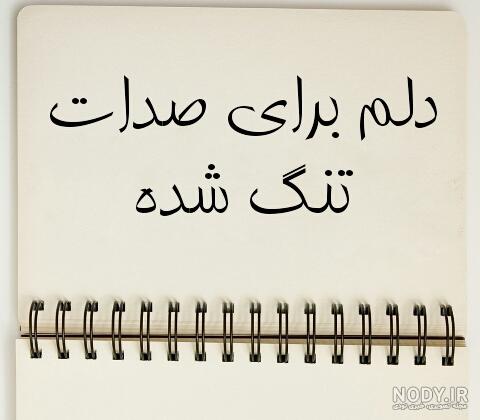 دلم برای صدات
تنگ شده
NODY.IR